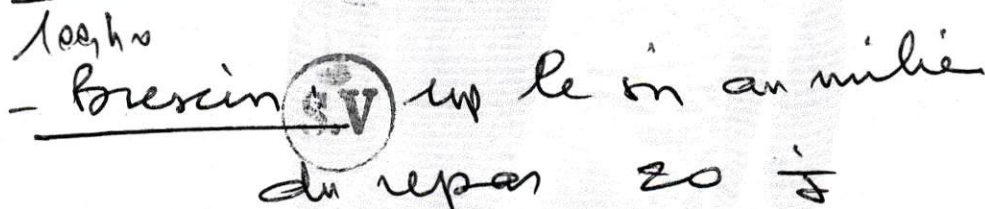 - Brexin S.V 1cp le soir au milieu
du repas 20 j